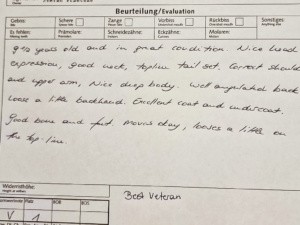 Beurteilung/Evaluation
Gebiss: Schere Zange Vorbiss Rückbiss Sonstiges:
Zä. fehlen: Prämolare: Schneidezähne: Eckzähne: Molaren:
9½ years old and in great condition. Nice head
expression, good neck, topline tail set. Correct should
and upper arm, Nice deep body. Well angulated back
loose a little backhand. Excellent coat and undercoat.
Good bone and feet. Moves okay, looses a little on
the top-line.
Widerristhöhe:
Platz BOB BOS
V 1
Best Veteran